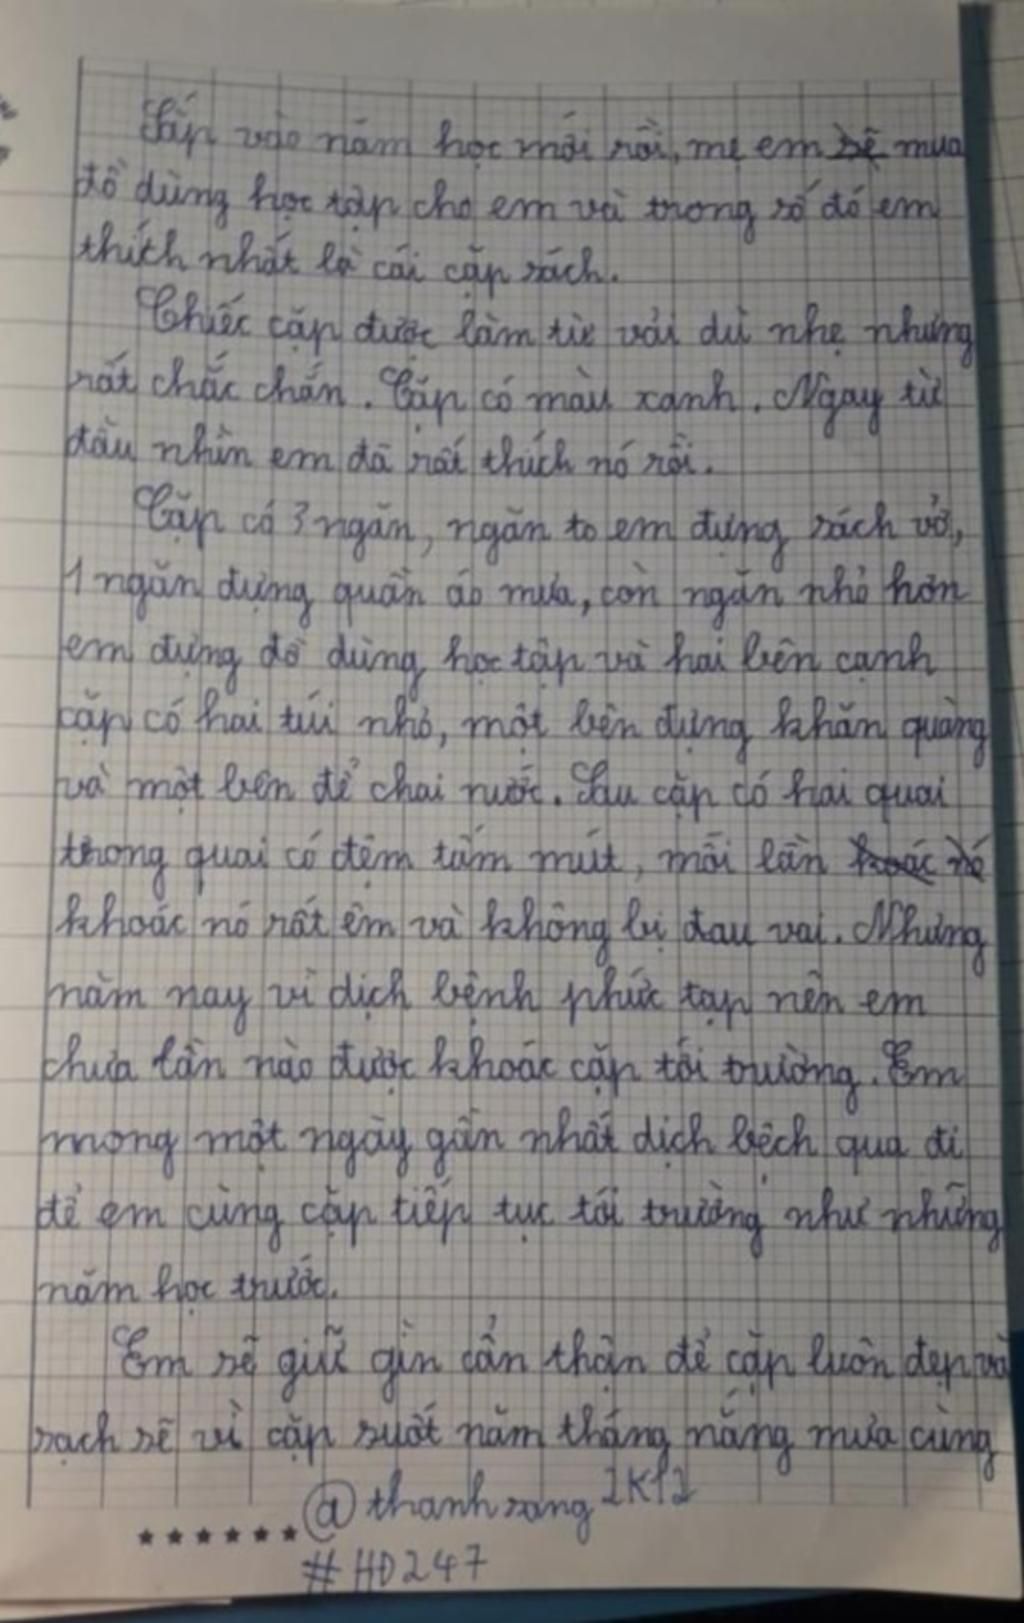 Sắp vào năm học mới rồi, mẹ em sẽ mua
đồ dùng học tập cho em và trong số đó em
thích nhất là cái cặp sách.
Chiếc cặp được làm từ vải dù nhẹ nhưng
rất chắc chắn. Cặp có màu xanh. Ngay từ
đầu nhìn em đã rất thích nó rồi.
Cặp có 3 ngăn, ngăn to em đựng sách vở,
1 ngăn đựng quần áo mưa, còn ngăn nhỏ hơn
em đựng đồ dùng học tập và hai bên cạnh
cặp có hai túi nhỏ, một bên đựng khăn quàng
và một bên để chai nước. Sau cặp có hai quai
trong quai có đệm tấm mút, mỗi lần
khoác nó rất êm và không bị đau vai. Nhưng
năm nay vì dịch bệnh phức tạp nên em
chưa lần nào được khoác cặp tới trường. Em
mong một ngày gần nhất dịch bệch qua đi
để em cùng cặp tiếp tục tới trường như những
năm học trước.
Em sẽ giữ gìn cẩn thận để cặp luôn đẹp và
sạch sẽ vì cặp suốt năm tháng nắng mưa cùng
@thanhsang 2K12
#HD247